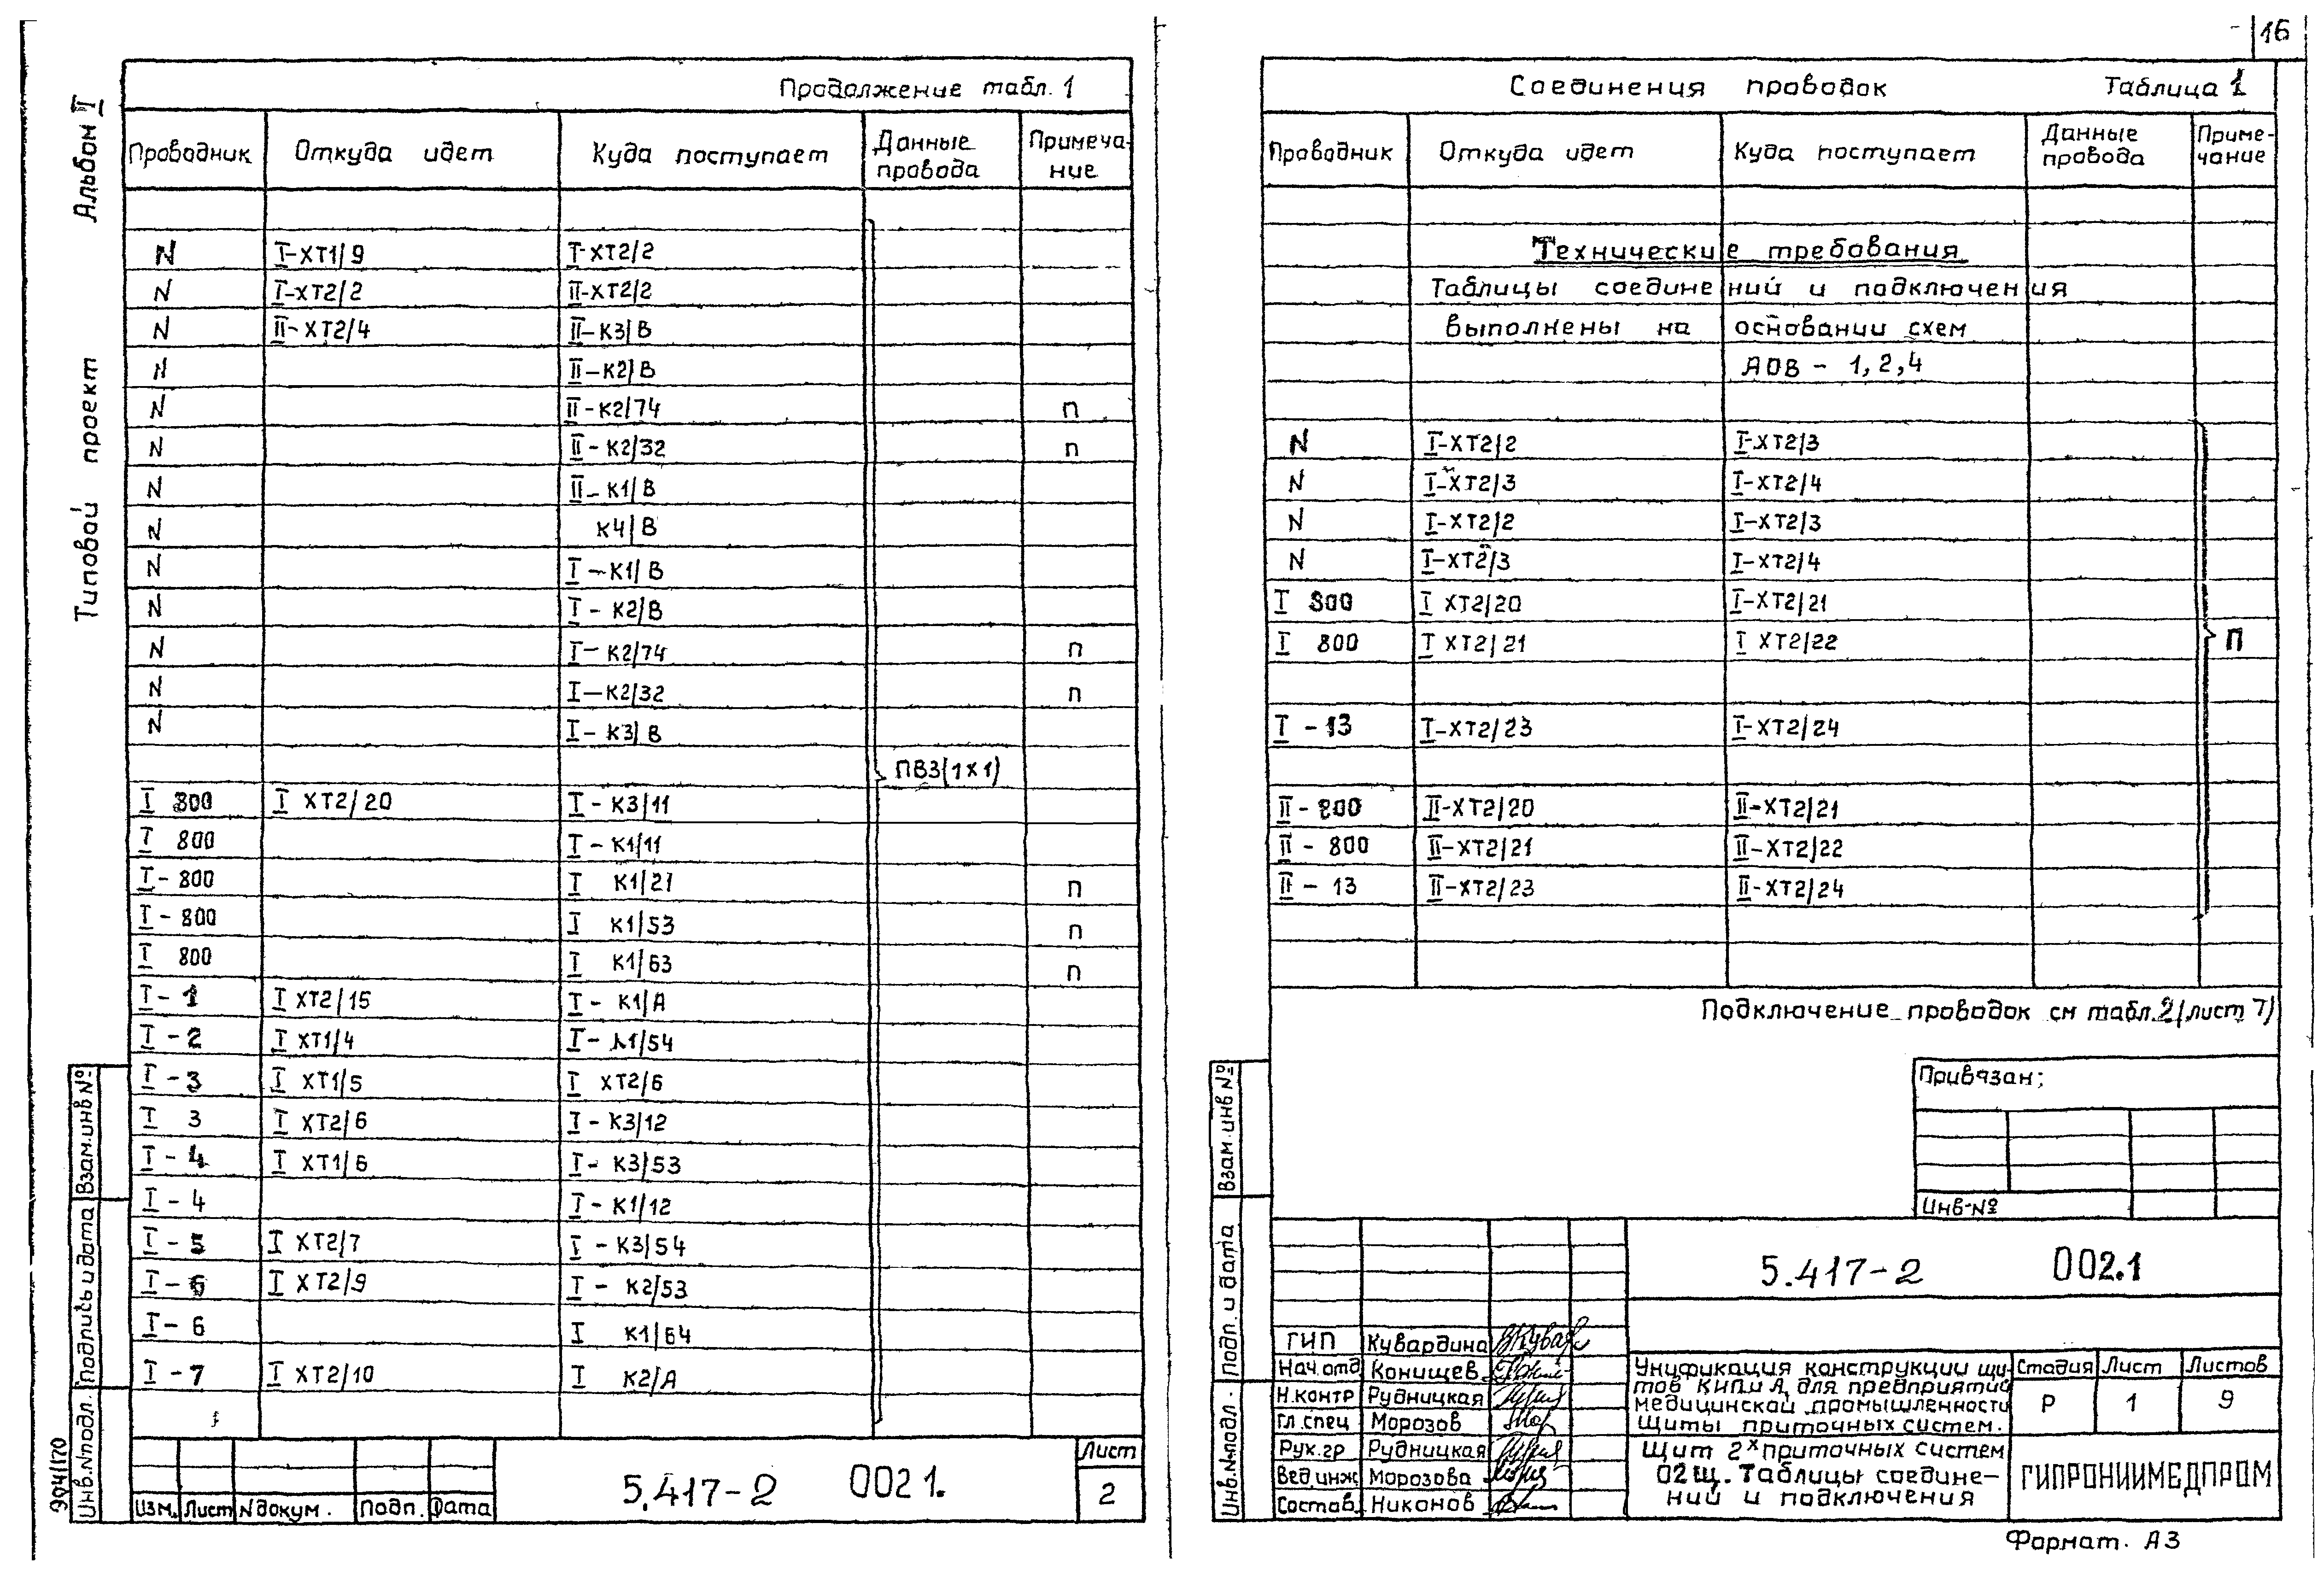 Альбом II
Типовой проект
Продолжение табл. 1
Проводник Откуда идет Куда поступает Данные провода Примеча-ние
N I-XT1/9 I-XT2/2
N I-XT2/2 II-XT2/2
N II-XT2/4 II-K3/B
N II-K2/B
N II-K2/74 П
N II-K2/32 П
N II-K1/B
N K4/B
N I-K1/B
N I-K2/B
N I-K2/74 П
N I-K2/32 П
N I-K3/B
ПВ3(1х1)
I 800 I XT2/20 I-K3/11
I 800 I-K1/11
I-800 I K1/21 П
I-800 I K1/53 П
I 800 I K1/63 П
I-1 I XT2/15 I-K1/A
I-2 I XT1/4 I-K1/54
I-3 I XT1/5 I XT2/6
I 3 I XT2/6 I-K3/12
I-4 I XT1/6 I-K3/53
I-4 I-K1/12
I-5 I XT2/7 I-K3/54
I-6 I XT2/9 I-K2/53
I-6 I K1/64
I-7 I XT2/10 I K2/A
Взам.инв №
Подпись и дата
Инв.№подл.
Изм. Лист N докум. Подп. Дата
5.417-2 002 1.
Лист
2
16
Соединения проводок Таблица 1
Проводник Откуда идет Куда поступает Данные провода Приме-чание
Технические требования
Таблицы соединений и подключения
выполнены на основании схем
АОВ - 1,2,4
N I-XT2/2 I-XT2/3
N I-XT2/3 I-XT2/4
N I-XT2/2 I-XT2/3
N I-XT2/3 I-XT2/4
I 800 I XT2/20 I-XT2/21
I 800 I XT2/21 I XT2/22
П
I-13 I-XT2/23 I-XT2/24
II-800 II-XT2/20 II-XT2/21
II-800 II-XT2/21 II-XT2/22
II-13 II-XT2/23 II-XT2/24
Подключение проводок см табл.2(лист 7)
Привязан;
Инв-№
Взам.инв №
Подп. и дата
Инв.№подл.
5.417-2 002.1
ГИП Кувардина
Нач.отд Конищев
Н.контр Рудницкая
Гл.спец Морозов
Рук.гр Рудницкая
Вед.инж Морозова
Состав. Никонов
Унификация конструкции щи-
тов КИПиА для предприятий
медицинской промышленности
Щиты приточных систем.
Стадия Лист Листов
Р 1 9
Щит 2х приточных систем
02щ. Таблицы соедине-
ний и подключения
ГИПРОНИИМЕДПРОМ
Формат. А3